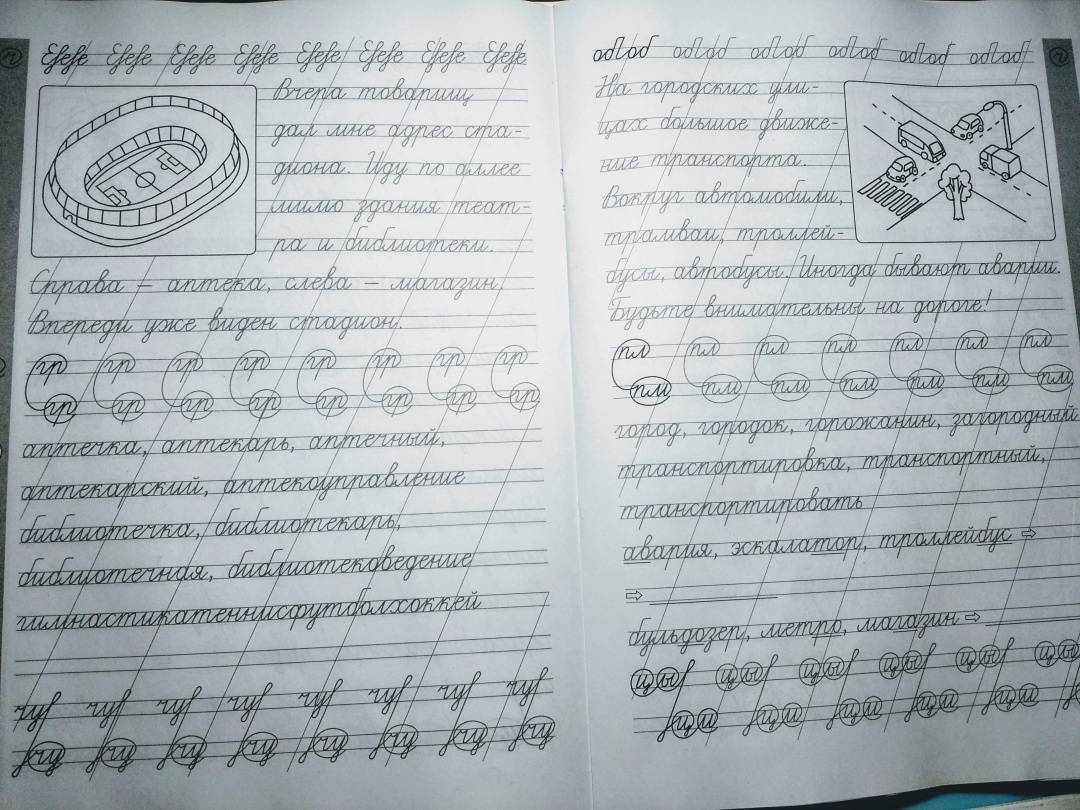 Вчера товарищ
дал мне адрес ста-
диона. Иду по аллее
мимо здания теат-
ра и библиотеки.
Справа – аптека, слева – магазин.
Впереди уже виден стадион.
гр гр гр гр гр гр гр гр
гр гр гр гр гр гр гр гр
аптечка, аптекарь, аптечный,
аптекарский, аптекоуправление
библиотечка, библиотекарь,
библиотечная, библиотековедение
гимнастикатеннисфутболхоккей
На городских ули-
цах большое движе-
ние транспорта.
Вокруг автомобили,
трамваи, троллей-
бусы, автобусы. Иногда бывают аварии.
Будьте внимательны на дороге!
пл пл пл пл пл пл пл
пм пм пм пм пм пм пм
город, городок, горожанин, загородный
транспортировка, транспортный,
транспортировать
авария, эскалатор, троллейбус ⇨
⇨
бульдозер, метро, магазин ⇨